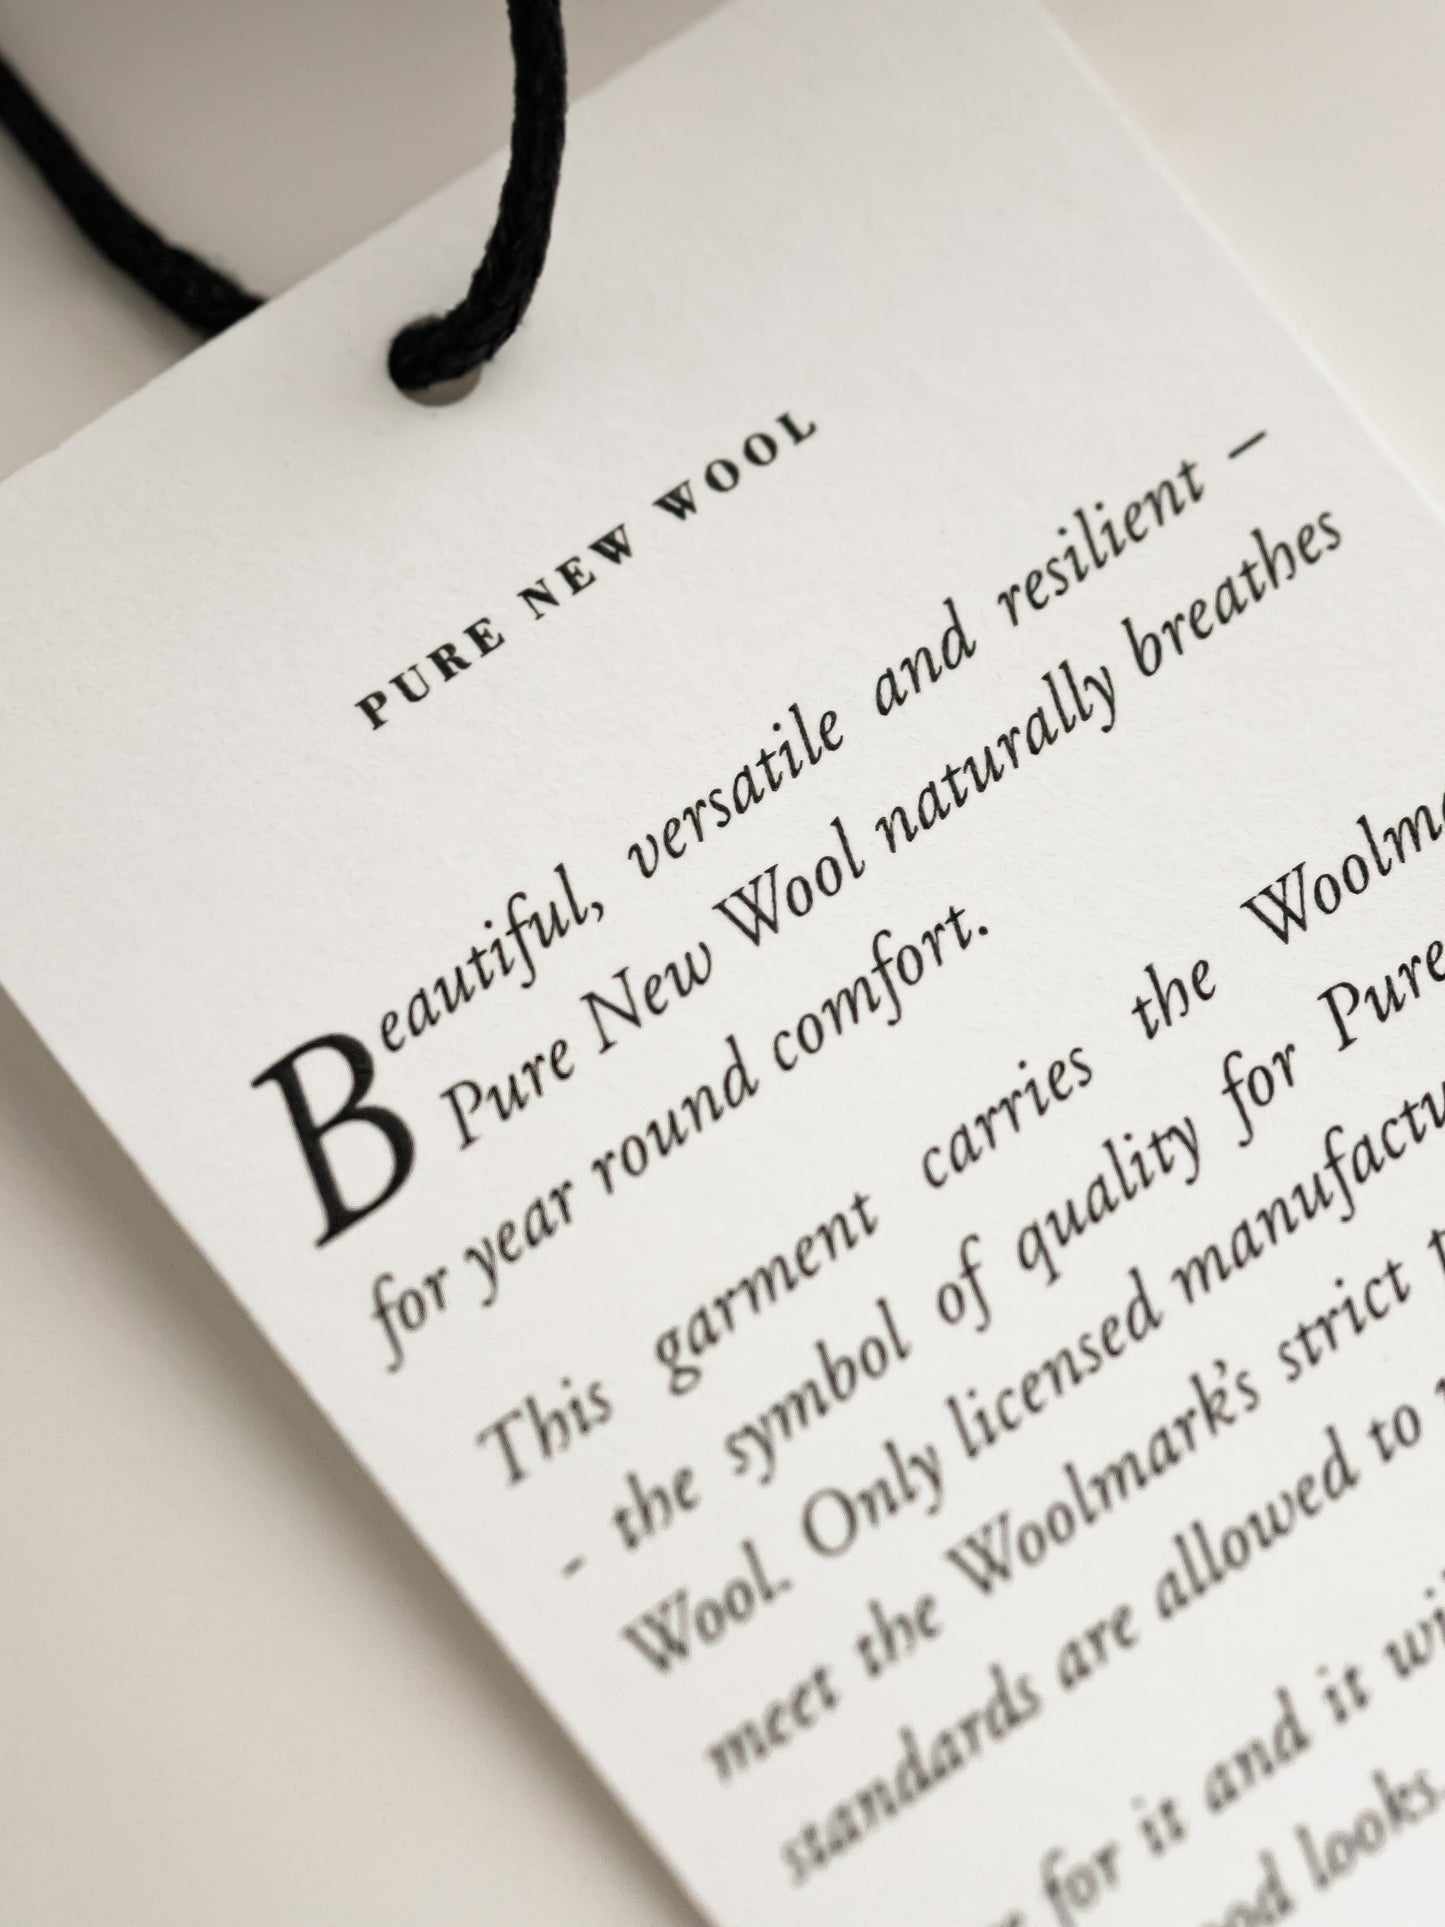 PURE NEW WOOL
Beautiful, versatile and resilient –
Pure New Wool naturally breathes
for year round comfort.
This garment carries the Woolma
- the symbol of quality for Pure
Wool. Only licensed manufactu
meet the Woolmark's strict t
standards are allowed to
for it and it wi
looks.